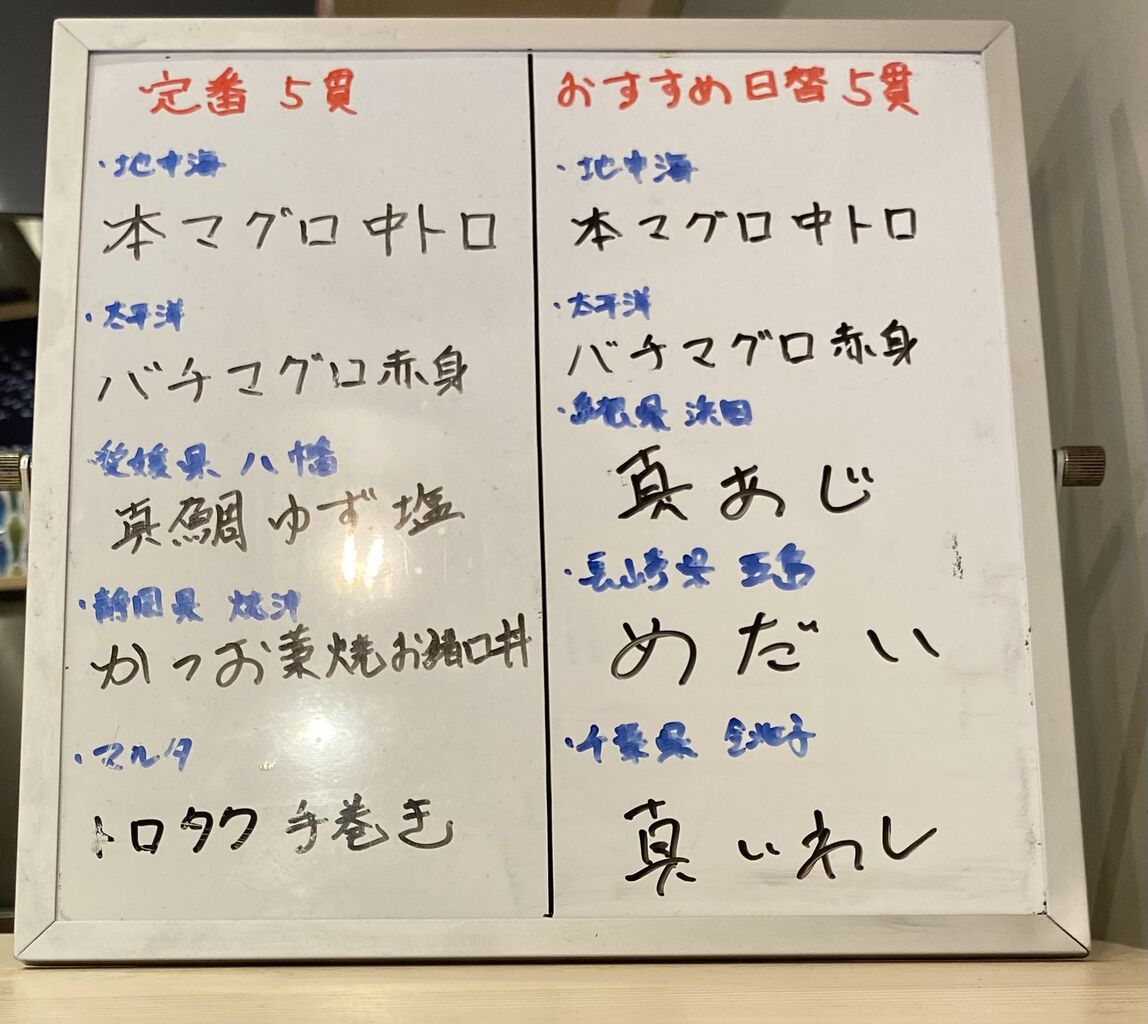 定番 5貫
・地中海
本マグロ中トロ
・太平洋
バチマグロ赤身
・愛媛県 八幡
真鯛ゆず塩
・静岡県 焼津
かつお藁焼お猪口丼
・マルタ
トロタク 手巻き
おすすめ日替5貫
・地中海
本マグロ中トロ
・太平洋
バチマグロ赤身
・島根県 浜田
真あじ
・長崎県 五島
めだい
・千葉県 銚子
真いわし